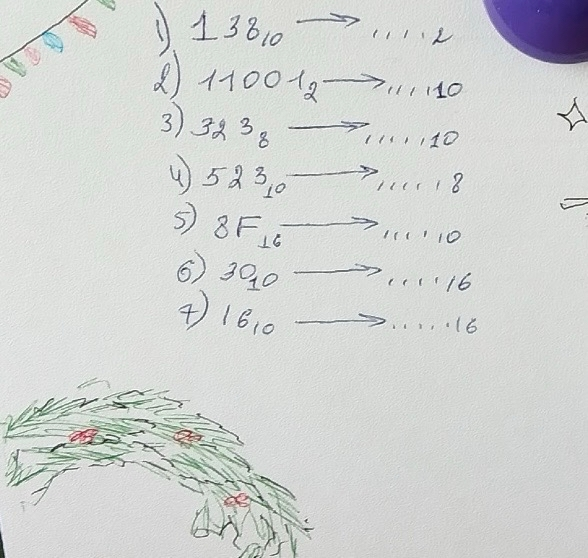 1) 138₁₀ → .....₂
2) 11001₂ → .....₁₀
3) 323₈ → .....₁₀
4) 523₁₀ → .....₈
5) 8F₁₆ → .....₁₀
6) 30₁₀ → .....₁₆
7) 16₁₀ → ......₁₆